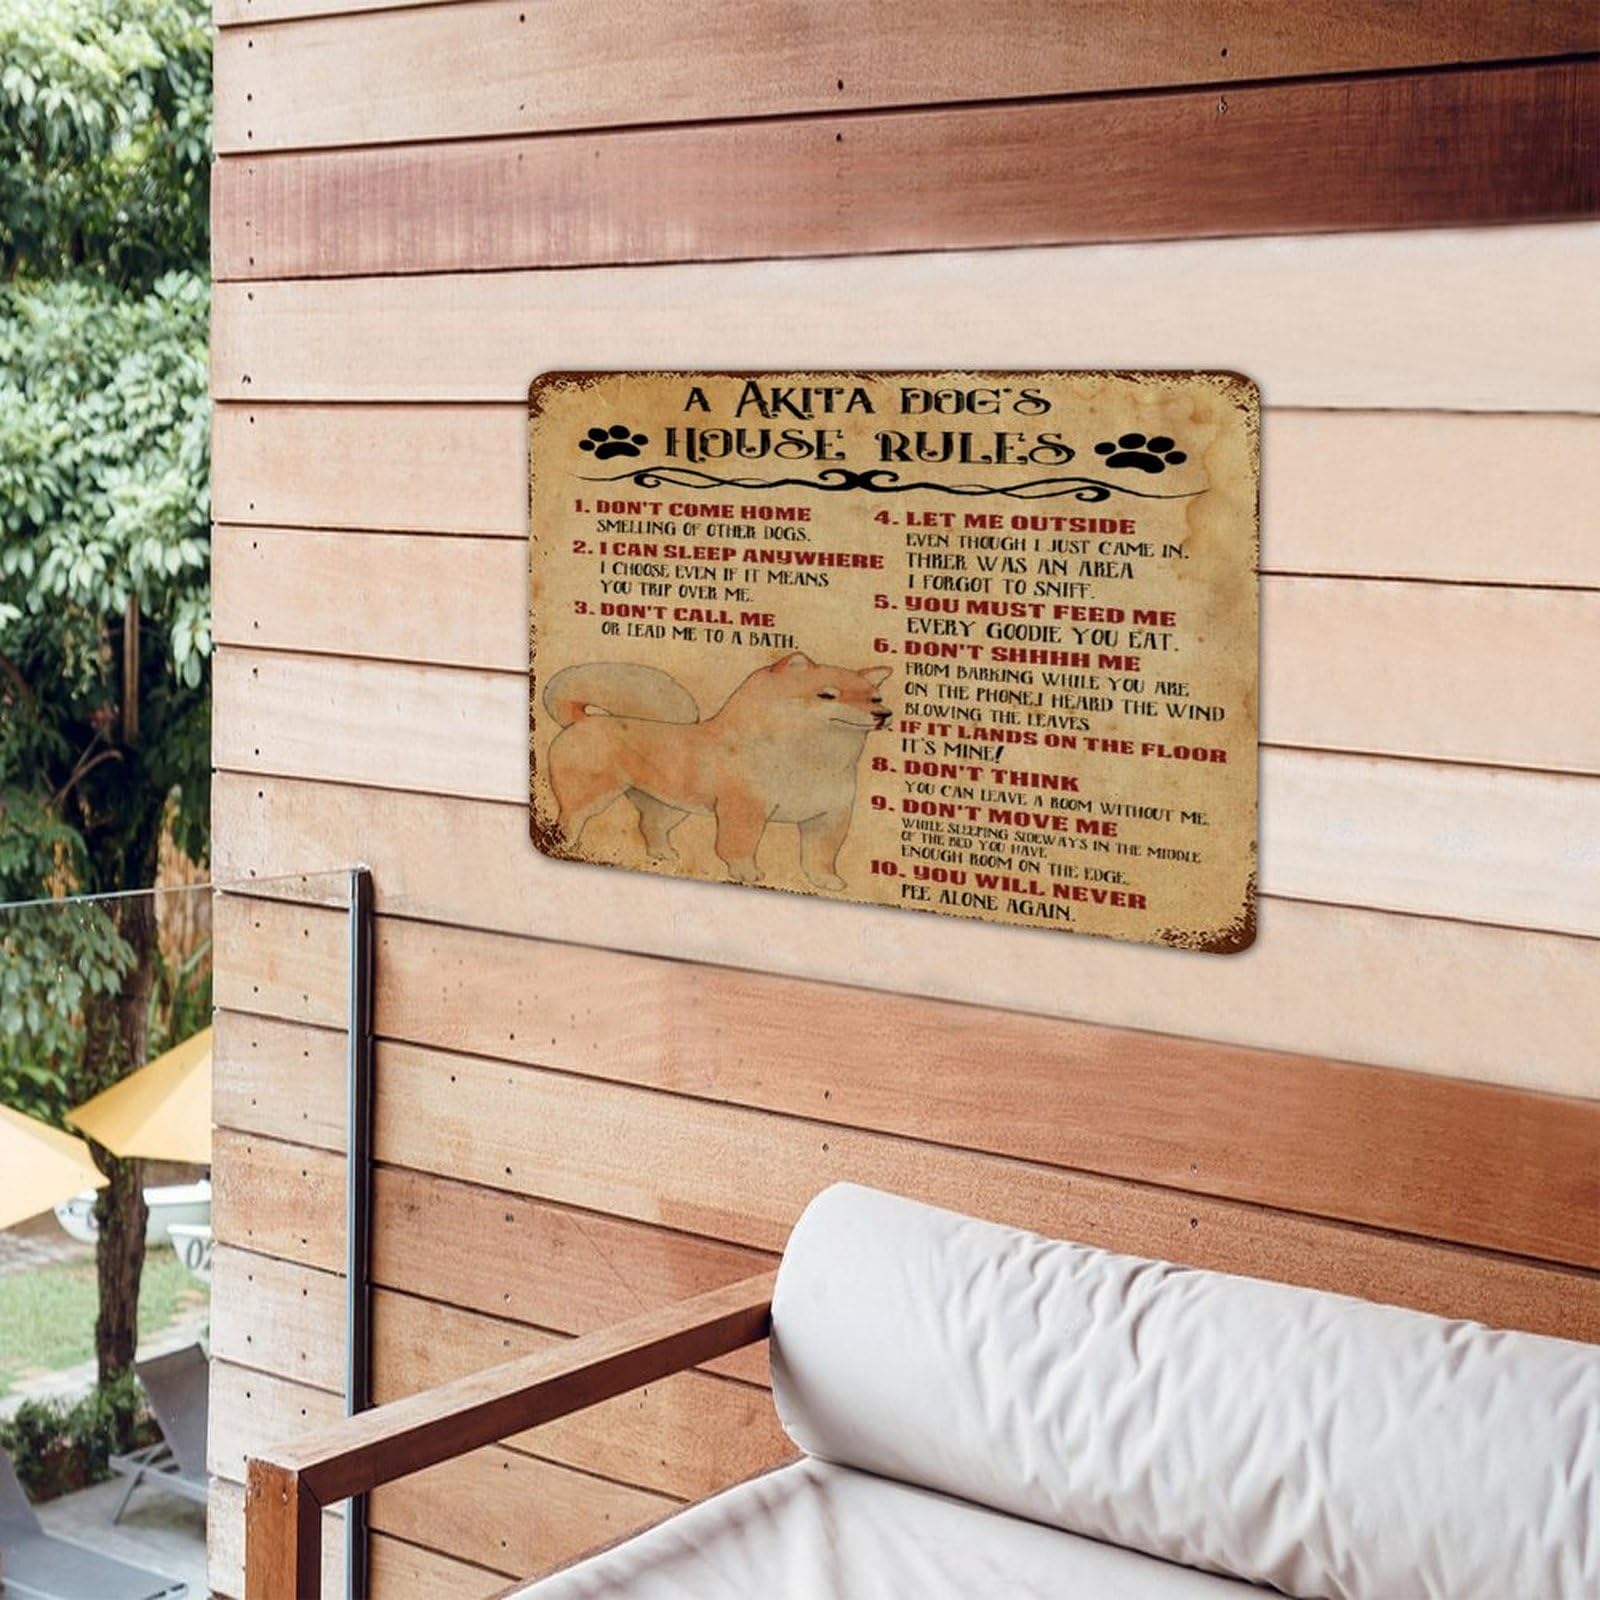 A AKITA DOG'S
HOUSE RULES
1. DON'T COME HOME
SMELLING OF OTHER DOGS.
2. I CAN SLEEP ANYWHERE
I CHOOSE EVEN IF IT MEANS
YOU TRIP OVER ME.
3. DON'T CALL ME
OR LEAD ME TO A BATH.
4. LET ME OUTSIDE
EVEN THOUGH I JUST CAME IN.
THRER WAS AN AREA
I FORGOT TO SNIFF.
5. YOU MUST FEED ME
EVERY GOODIE YOU EAT.
6. DON'T SHHHH ME
FROM BARKING WHILE YOU ARE
ON THE PHONE,I HEARD THE WIND
BLOWING THE LEAVES
7. IF IT LANDS ON THE FLOOR
IT'S MINE!
8. DON'T THINK
YOU CAN LEAVE A ROOM WITHOUT ME.
9. DON'T MOVE ME
WHILE SLEEPING SIDEWAYS IN THE MIDDLE
OF THE BED YOU HAVE
ENOUGH ROOM ON THE EDGE.
10. YOU WILL NEVER
PEE ALONE AGAIN.
02